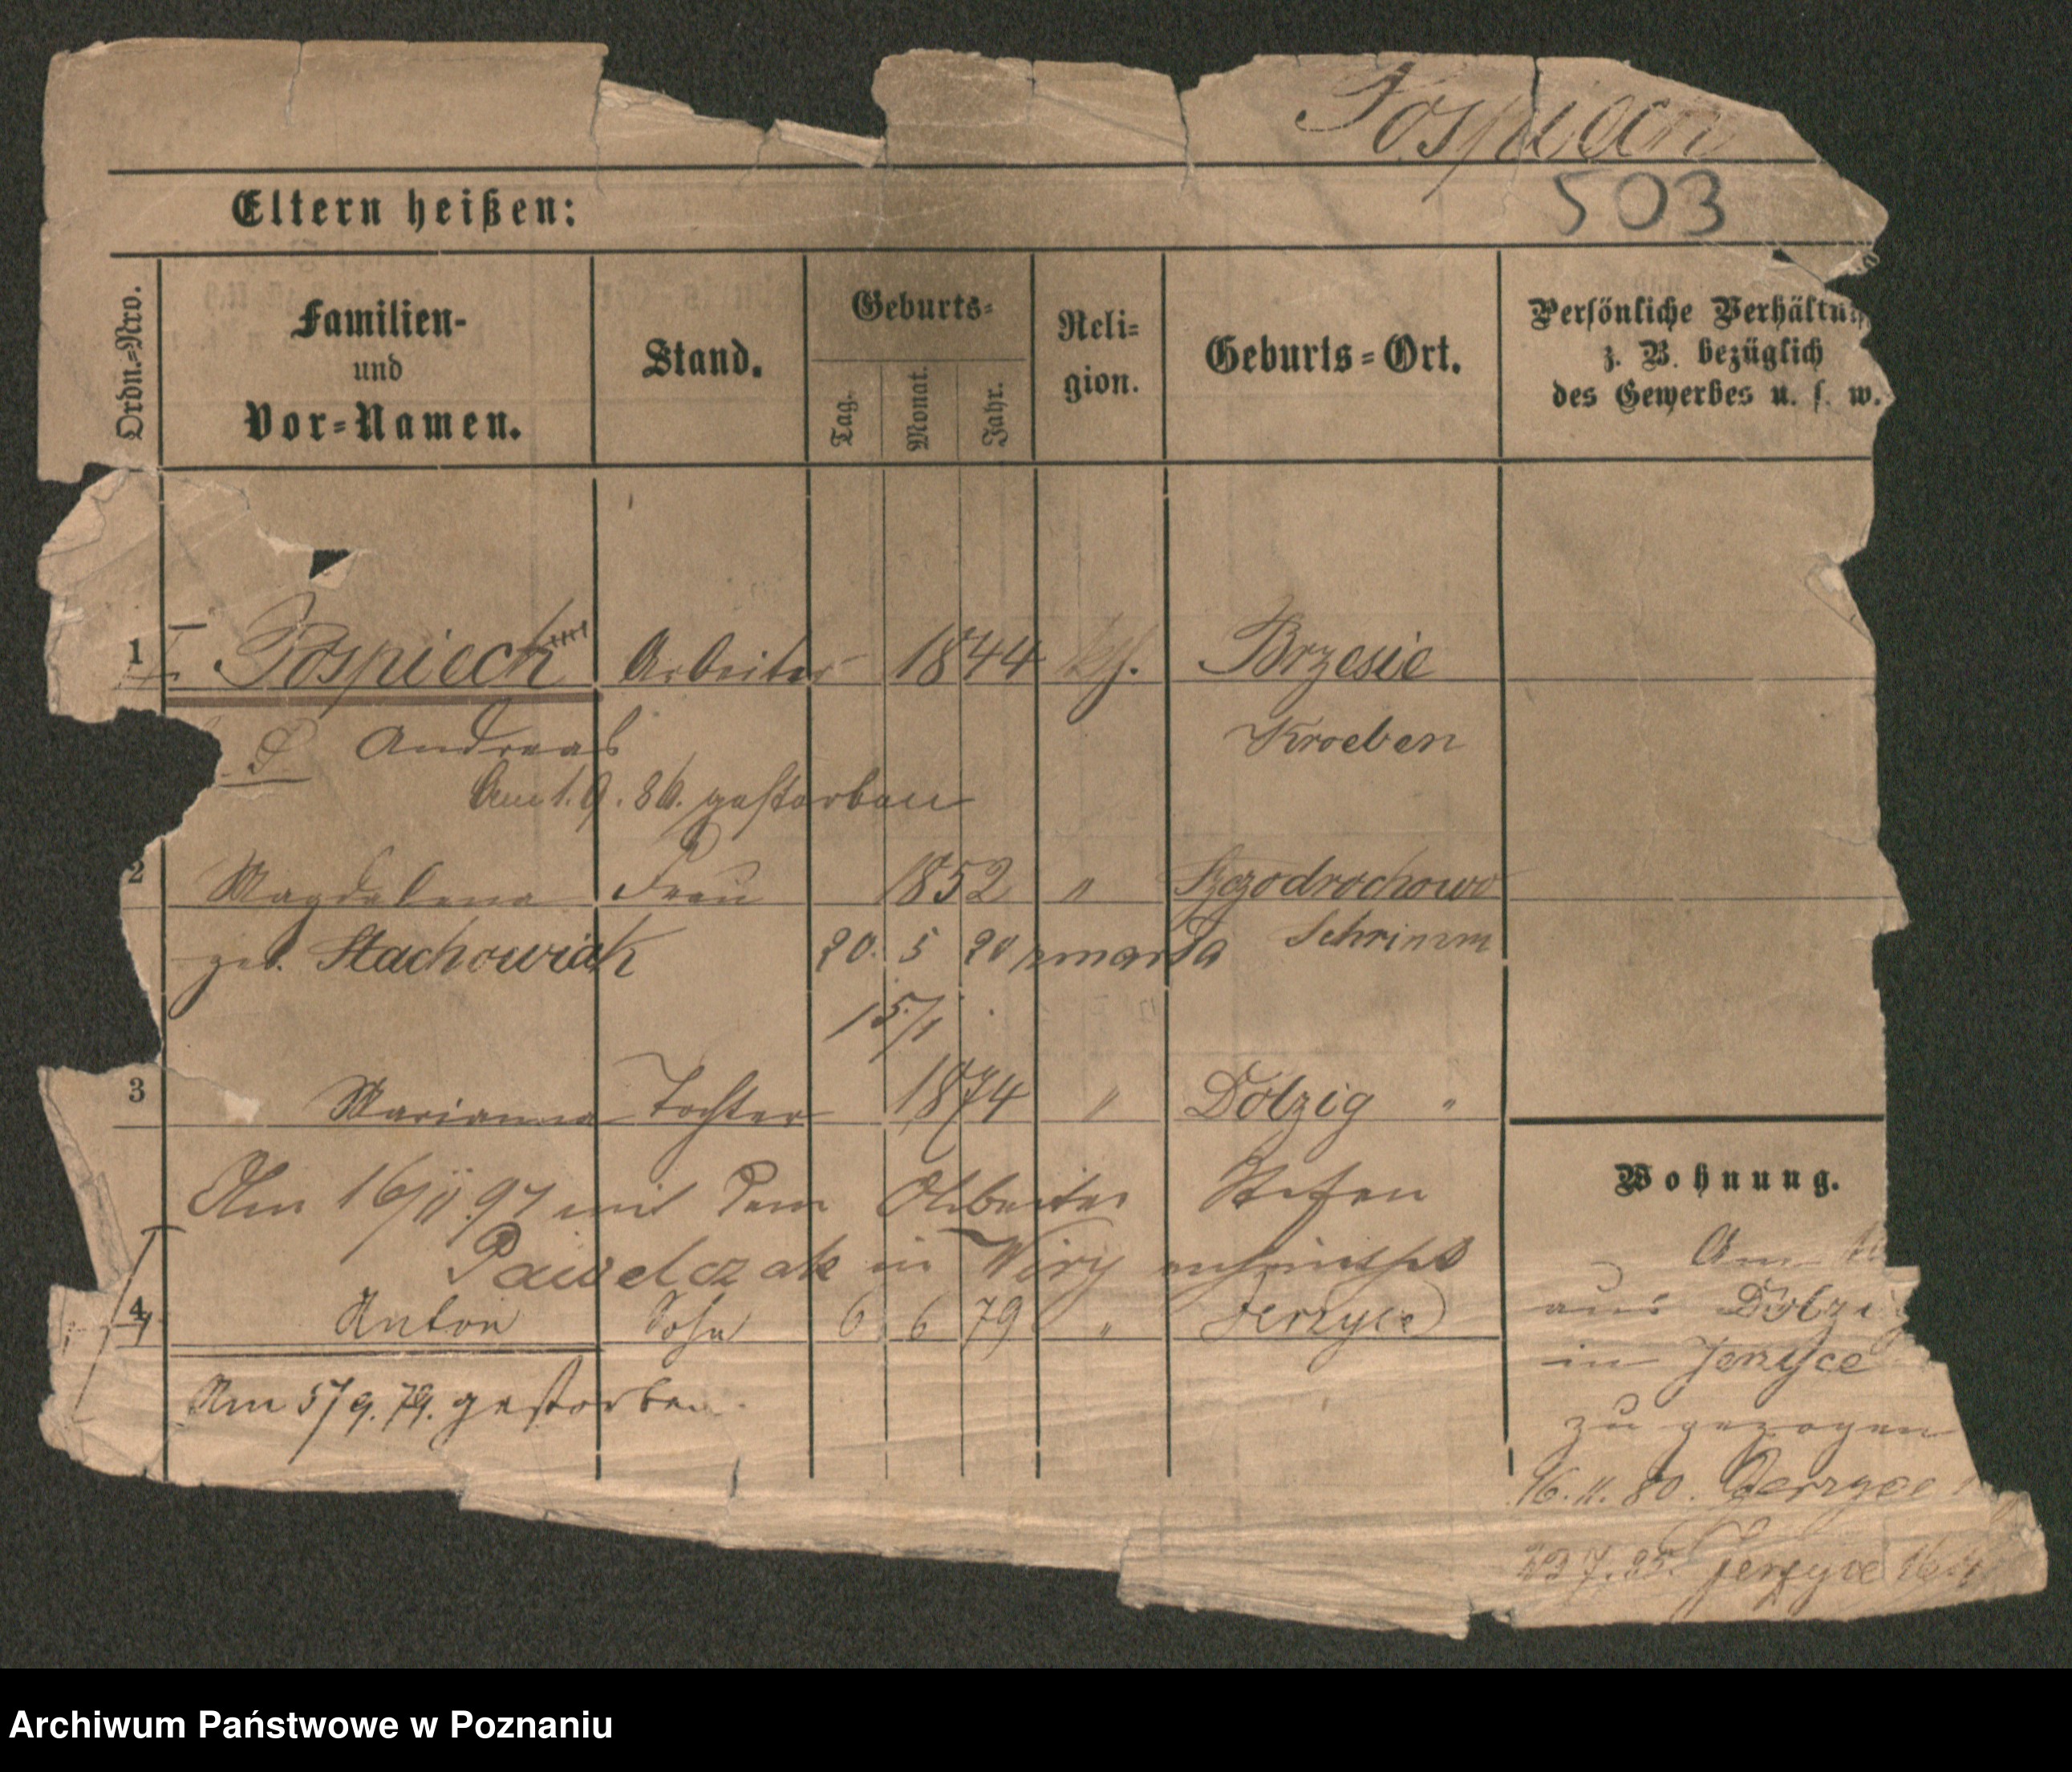 Pospiech
503
Eltern heißen:
Ordn.=Nro.
Familien-
und
Vor=Namen.
Stand.
Geburts=
Tag.
Monat.
Jahr.
Reli=
gion.
Geburts=Ort.
Persönliche Verhältn
z. B. bezüglich
des Gewerbes u. s. w.
1 Pospiech Arbeiter 1844 kth. Brzesie
Andreas Kroeben
Am 1.9.86. gestorben
2 Magdalena Frau 1852 " Szczodrochowo
geb. Stachowiak 20. 5 20 zmarła Schrimm
15/1
3 Marianna Tochter 1874 " Dolzig "
Am 16/11.97 mit dem Arbeiter Stefan
Pawelczak in Wiry
4 Anton Sohn 6 6 79 " Jerzyce
Am 5/9.79. gestorben.
Wohnung.
Am
aus Dolzig
in Jerzyce
zu gezogen
16.11.80. Jerzyce
Jerzyce
Archiwum Państwowe w Poznaniu